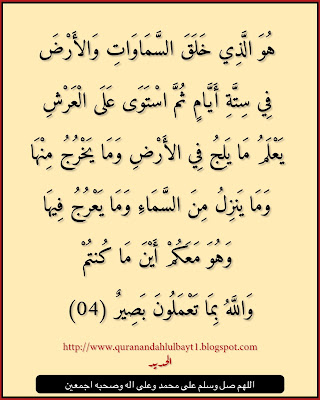 هُوَ الَّذِي خَلَقَ السَّمَاوَاتِ وَالأَرْضَ
فِي سِتَّةِ أَيَّامٍ ثُمَّ اسْتَوَى عَلَى الْعَرْشِ
يَعْلَمُ مَا يَلِجُ فِي الأَرْضِ وَمَا يَخْرُجُ مِنْهَا
وَمَا يَنزِلُ مِنَ السَّمَاءِ وَمَا يَعْرُجُ فِيهَا
وَهُوَ مَعَكُمْ أَيْنَ مَا كُنتُمْ
وَاللَّهُ بِمَا تَعْمَلُونَ بَصِيرٌ (04)
http://www.quranandahlulbayt1.blogspot.com
الحديد
اللهم صل وسلم على محمد وعلى اله وصحبه اجمعين